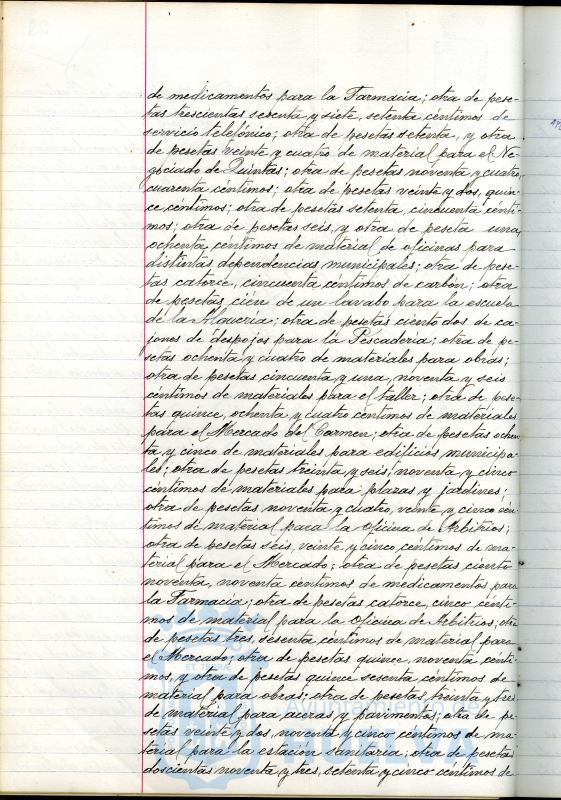 de medicamentos para la Farmacia; otra de pese-
tas trescientas sesenta y siete, setenta céntimos de
servicio telefónico; otra de pesetas setenta, y otra
de pesetas veinte y cuatro de material para el Ne-
gociado de Quintas; otra de pesetas noventa y cuatro,
cuarenta céntimos; otra de pesetas veinte y dos, quin-
ce céntimos; otra de pesetas setenta, cincuenta cénti-
mos; otra de pesetas seis, y otra de peseta una,
ochenta céntimos de material de oficinas para
distintas dependencias municipales; otra de pese-
tas catorce, cincuenta céntimos de carbón; otra
de pesetas cien de un lavabo para la escuela
de la Alquería; otra de pesetas ciento dos de ca-
jones de despojos para la Pescadería; otra de pe-
setas ochenta y cuatro de materiales para obras;
otra de pesetas cincuenta y una, noventa y seis
céntimos de materiales para el taller; otra de pese-
tas quince, ochenta y cuatro céntimos de materiales
para el Mercado del Carmen; otra de pesetas ochen-
ta y cinco de materiales para edificios municipa-
les; otra de pesetas treinta y seis, noventa y cinco
céntimos de materiales para plazas y jardines;
otra de pesetas noventa y cuatro, veinte y cinco cén-
timos de material para la oficina de Arbitrios;
otra de pesetas seis, veinte y cinco céntimos de ma-
terial para el Mercado; otra de pesetas ciento
noventa, noventa céntimos de medicamentos para
la Farmacia; otra de pesetas catorce, cinco cénti-
mos de material para la oficina de Arbitrios; otra
de pesetas tres, sesenta céntimos de material para
el Mercado; otra de pesetas quince, noventa cénti-
mos, y otra de pesetas quince sesenta céntimos de
material para obras; otra de pesetas treinta y tres
de material para aceras y pavimentos; otra de pe-
setas veinte y dos, noventa y cinco céntimos de ma-
terial para la estación sanitaria; otra de pesetas
doscientas noventa y tres, setenta y cinco céntimos de
Ayuntamiento de